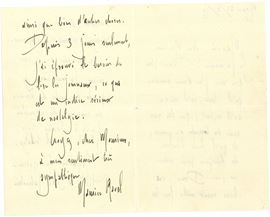 ainsi que bien d'autres choses.
Depuis 3 jours seulement,
j'ai éprouvé le besoin de
lire les journaux, ce qui
est un indice sérieux
de nostalgie.
Croyez, cher Monsieur,
à mes sentiments très
sympathiques
Maurice Ravel